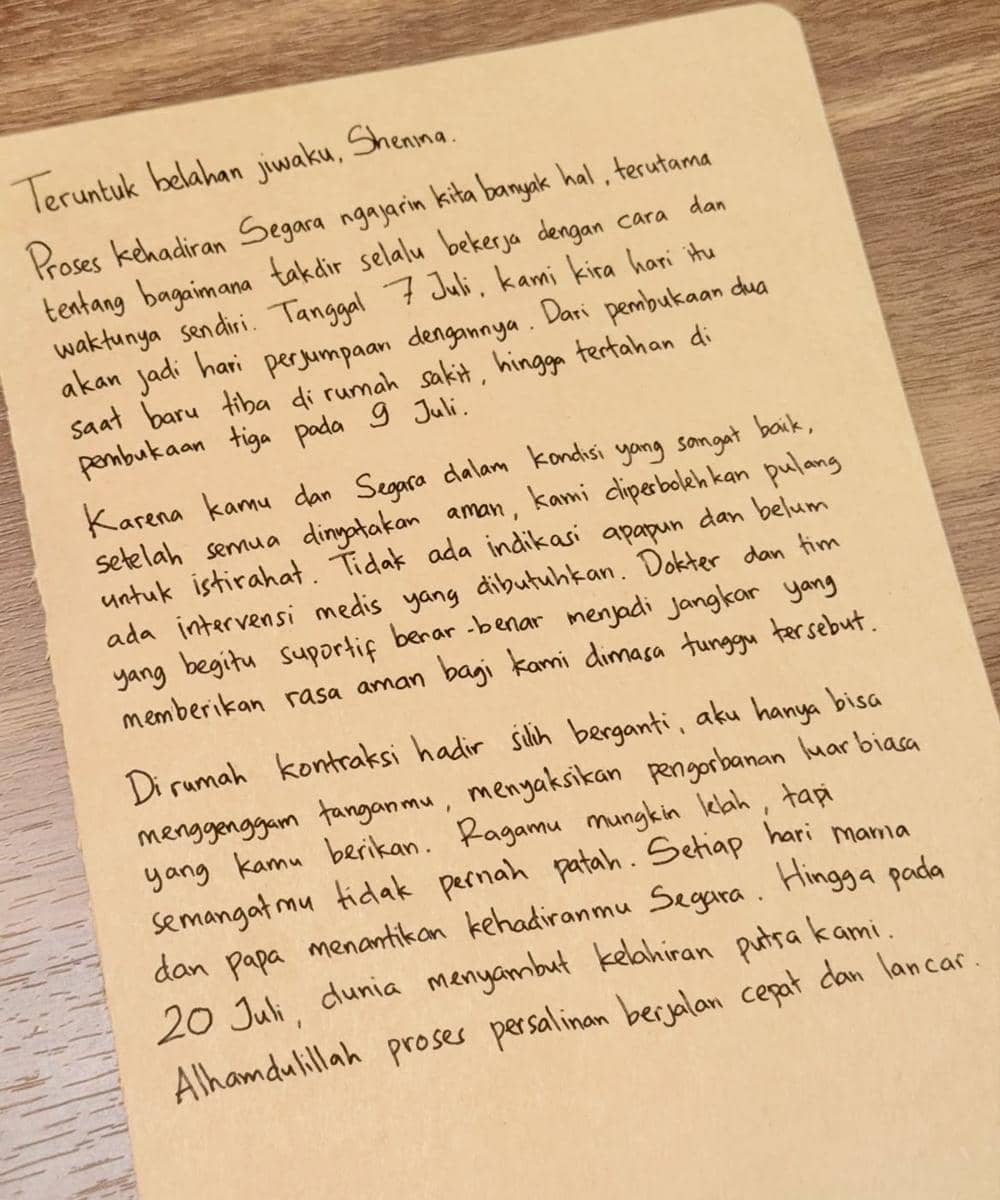 Teruntuk belahan jiwaku, Shenina.
Proses kehadiran Segara ngajarin kita banyak hal, terutama
tentang bagaimana takdir selalu bekerja dengan cara dan
waktunya sendiri. Tanggal 7 Juli, kami kira hari itu
akan jadi hari perjumpaan dengannya. Dari pembukaan dua
saat baru tiba di rumah sakit, hingga tertahan di
pembukaan tiga pada 9 Juli.
Karena kamu dan Segara dalam kondisi yang sangat baik,
setelah semua dinyatakan aman, kami diperbolehkan pulang
untuk istirahat. Tidak ada indikasi apapun dan belum
ada intervensi medis yang dibutuhkan. Dokter dan tim
yang begitu suportif benar-benar menjadi jangkar yang
memberikan rasa aman bagi kami dimasa tunggu tersebut.
Di rumah kontraksi hadir silih berganti, aku hanya bisa
menggenggam tanganmu, menyaksikan pengorbanan luar biasa
yang kamu berikan. Ragamu mungkin lelah, tapi
semangatmu tidak pernah patah. Setiap hari mama
dan papa menantikan kehadiranmu Segara. Hingga pada
20 Juli, dunia menyambut kelahiran putra kami.
Alhamdulillah proses persalinan berjalan cepat dan lancar.